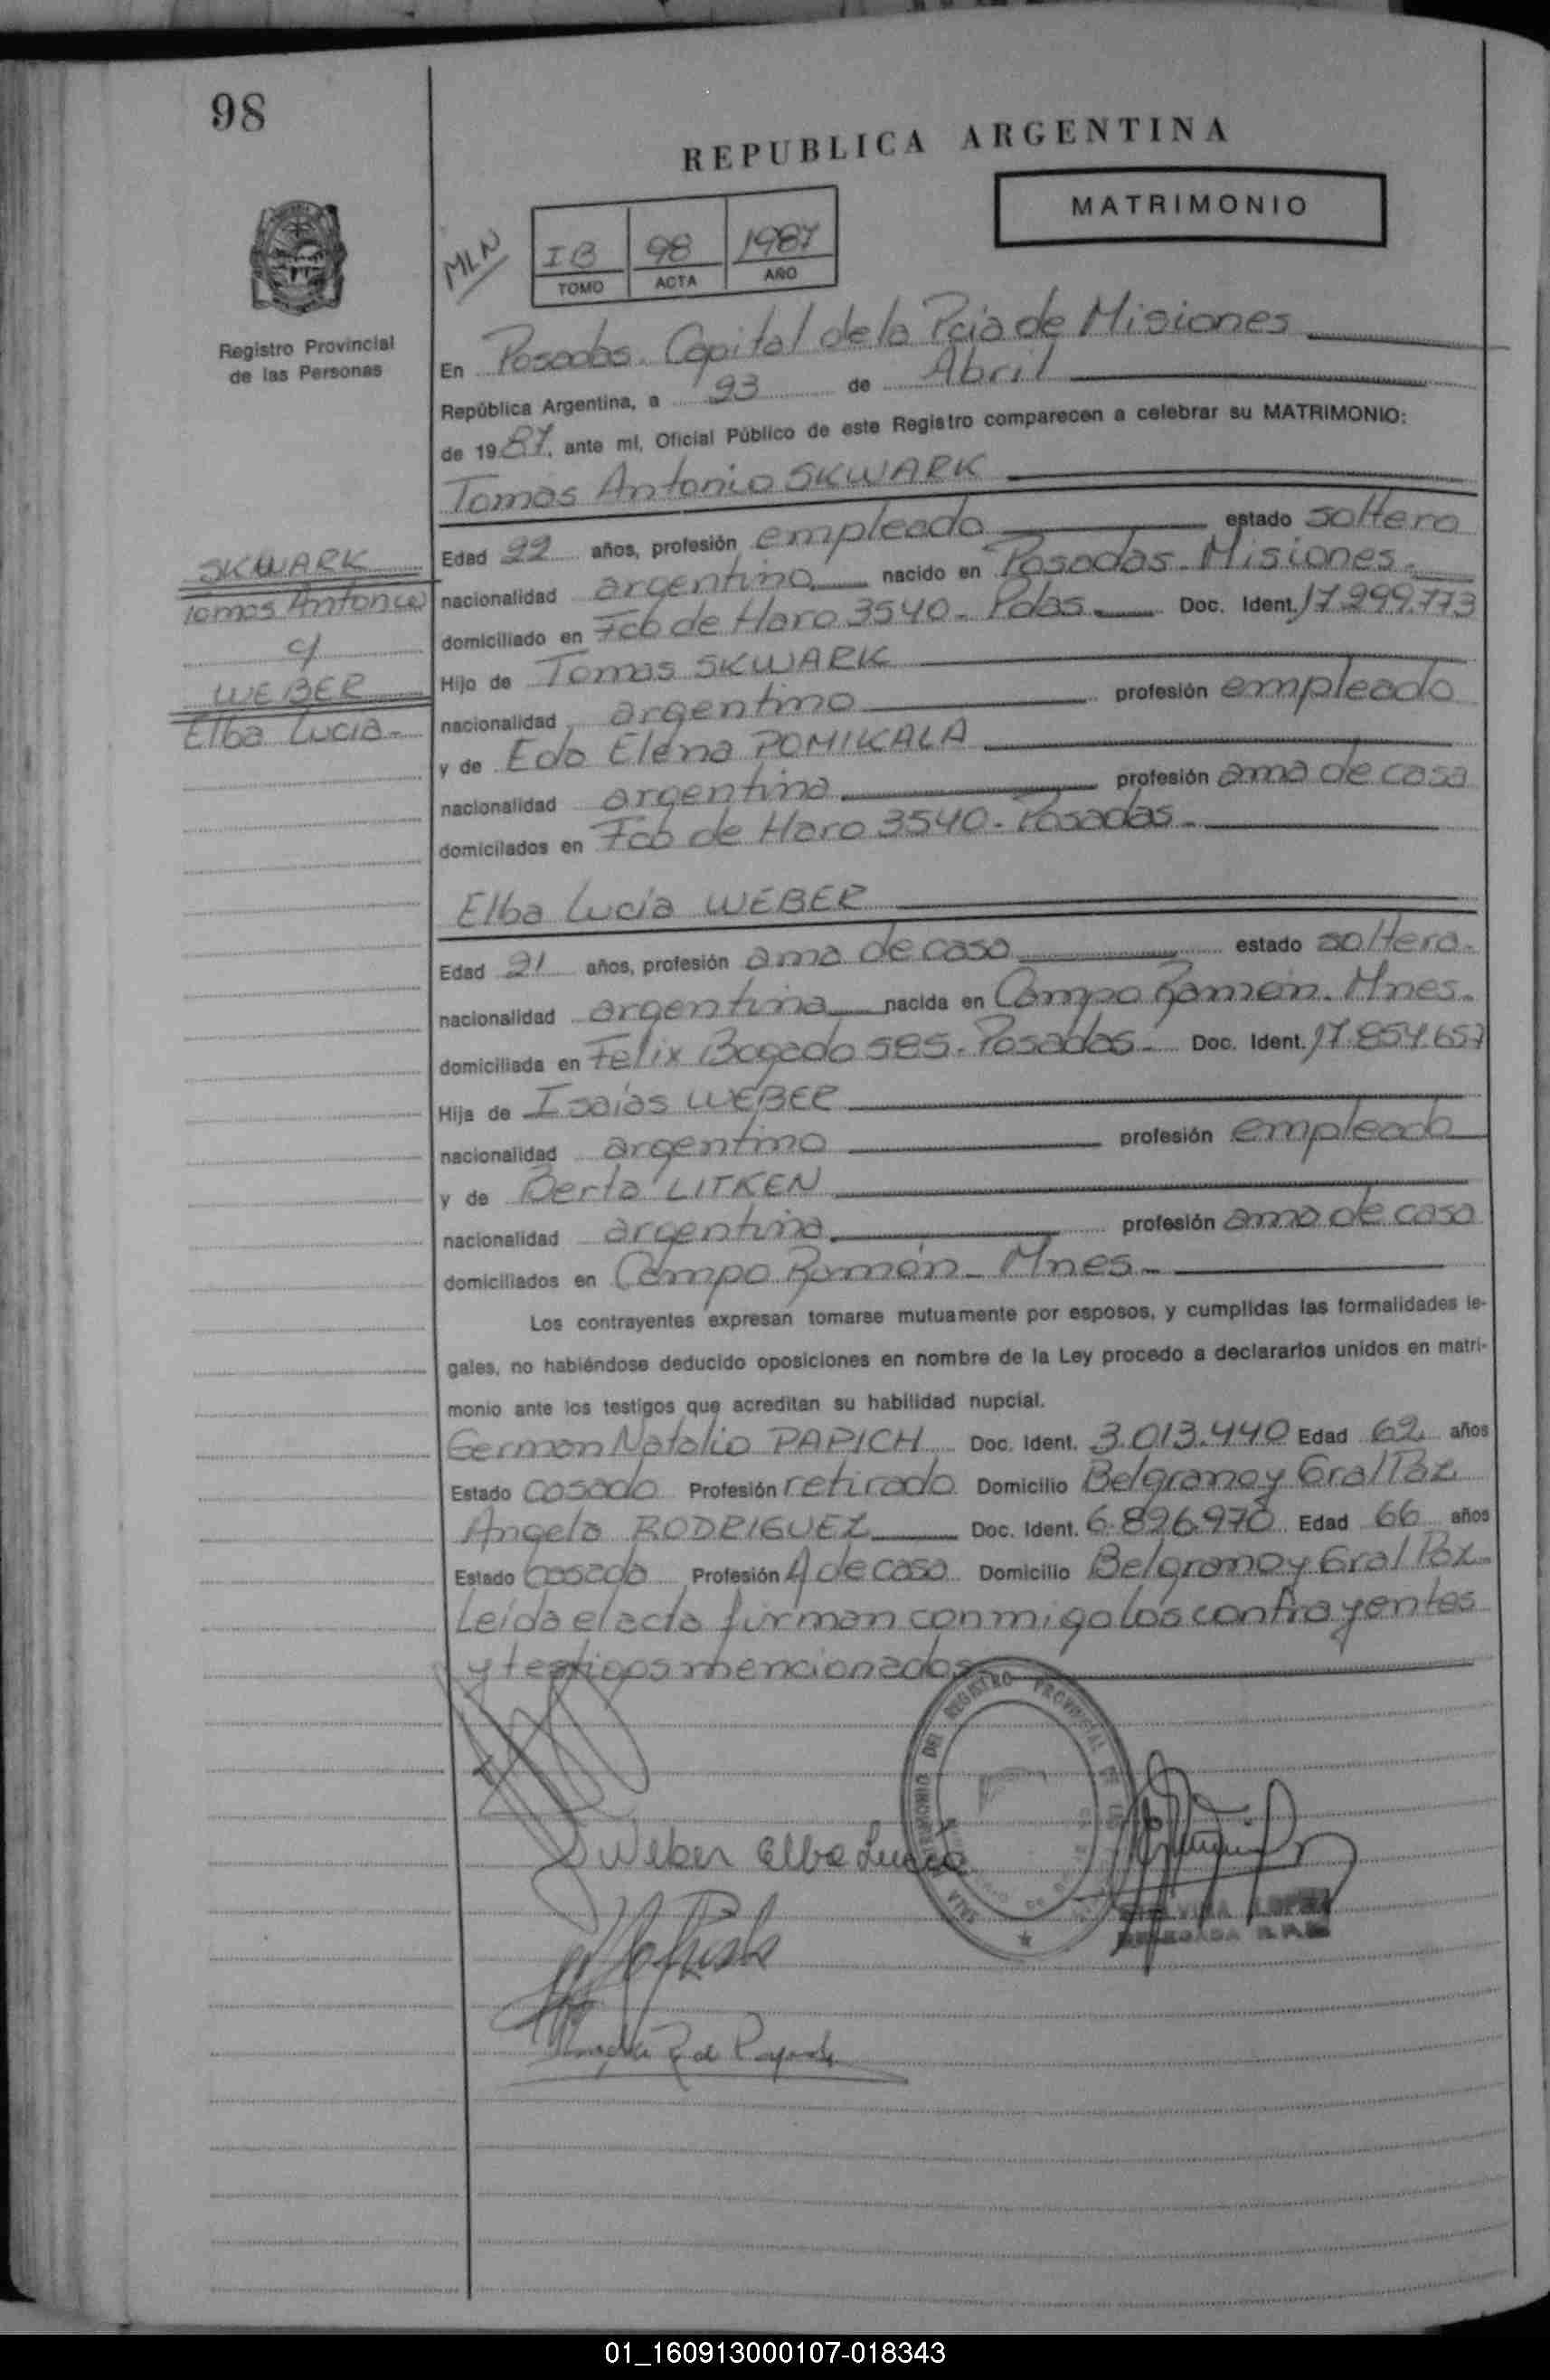 98
REPUBLICA ARGENTINA
MATRIMONIO
MLN
IB 98 1987
TOMO ACTA AÑO
Registro Provincial
de las Personas
En Posadas. Capital de la Pcia de Misiones
República Argentina, a 23 de Abril
de 1987, ante mí, Oficial Público de este Registro comparecen a celebrar su MATRIMONIO:
Tomas Antonio SKWARK
SKWARK
Tomas Antonio
c/
WEBER
Elba Lucia-
Edad 22 años, profesión empleado estado soltero
nacionalidad argentino nacido en Posadas-Misiones-
domiciliado en Fco de Haro 3540- Pdas- Doc. Ident. 17.299.773
Hijo de Tomas SKWARK
nacionalidad argentino profesión empleado
y de Eda Elena POMIKALA
nacionalidad argentina profesión ama de casa
domicilados en Fco de Haro 3540- Posadas-
Elba Lucia WEBER
Edad 21 años, profesión ama de casa estado soltera-
nacionalidad argentina nacida en Campo Ramón- Mnes-
domiciliada en Felix Bogado 585- Posadas- Doc. Ident. 17.854.657
Hija de Isaias WEBER
nacionalidad argentino profesión empleado
y de Berta LITKEN
nacionalidad argentina profesión ama de casa
domiciliados en Campo Ramón- Mnes-
Los contrayentes expresan tomarse mutuamente por esposos, y cumplidas las formalidades le-
gales, no habiéndose deducido oposiciones en nombre de la Ley procedo a declararlos unidos en matri-
monio ante los testigos que acreditan su habilidad nupcial.
German Natalio PAPICH Doc. Ident. 3.013.440 Edad 62 años
Estado casado Profesión retirado Domicilio Belgrano y Gral Paz
Angela RODRIGUEZ Doc. Ident. 6.826.970 Edad 66 años
Estado casada Profesión A de casa Domicilio Belgrano y Gral Paz-
Leída el acta firman conmigo los contrayentes
y testigos mencionados
DEL REGISTRO PROVINCIAL DE LAS
Weber Elba Lucia
LOPEZ
DELEGADA R.P.P.
01_160913000107-018343